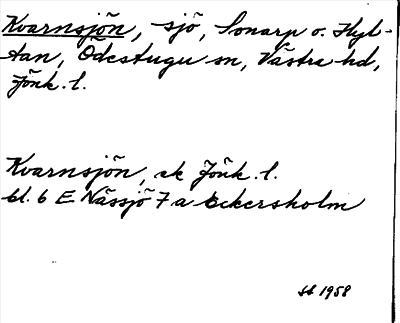 Kvarnsjön, sjö, Sonarp o. Hyl-
tan, Ödestugu sn, Västra hd,
Jönk. l.
Kvarnsjön, ek Jönk. l.
bl. 6 E Nässjö 7 a Eckersholm
1958